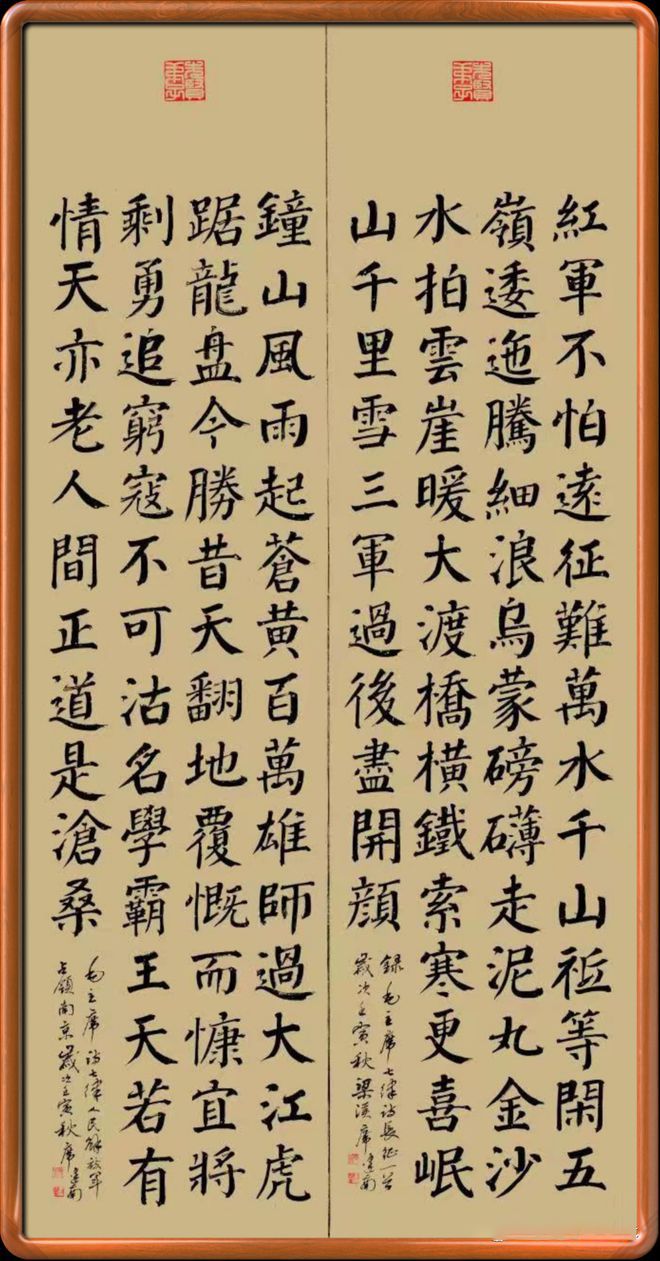 紅軍不怕遠征難萬水千山祗等閑五
嶺逶迤騰細浪烏蒙磅礴走泥丸金沙
水拍雲崖暖大渡橋橫鐵索寒更喜岷
山千里雪三軍過後盡開顔
録毛主席七律詩長征一首
歲次壬寅秋梁溪席建南
鐘山風雨起蒼黄百萬雄師過大江虎
踞龍盤今勝昔天翻地覆慨而慷宜將
剩勇追窮寇不可沽名學霸王天若有
情天亦老人間正道是滄桑
毛主席詩七律人民解放軍
占領南京歲次壬寅秋席建南